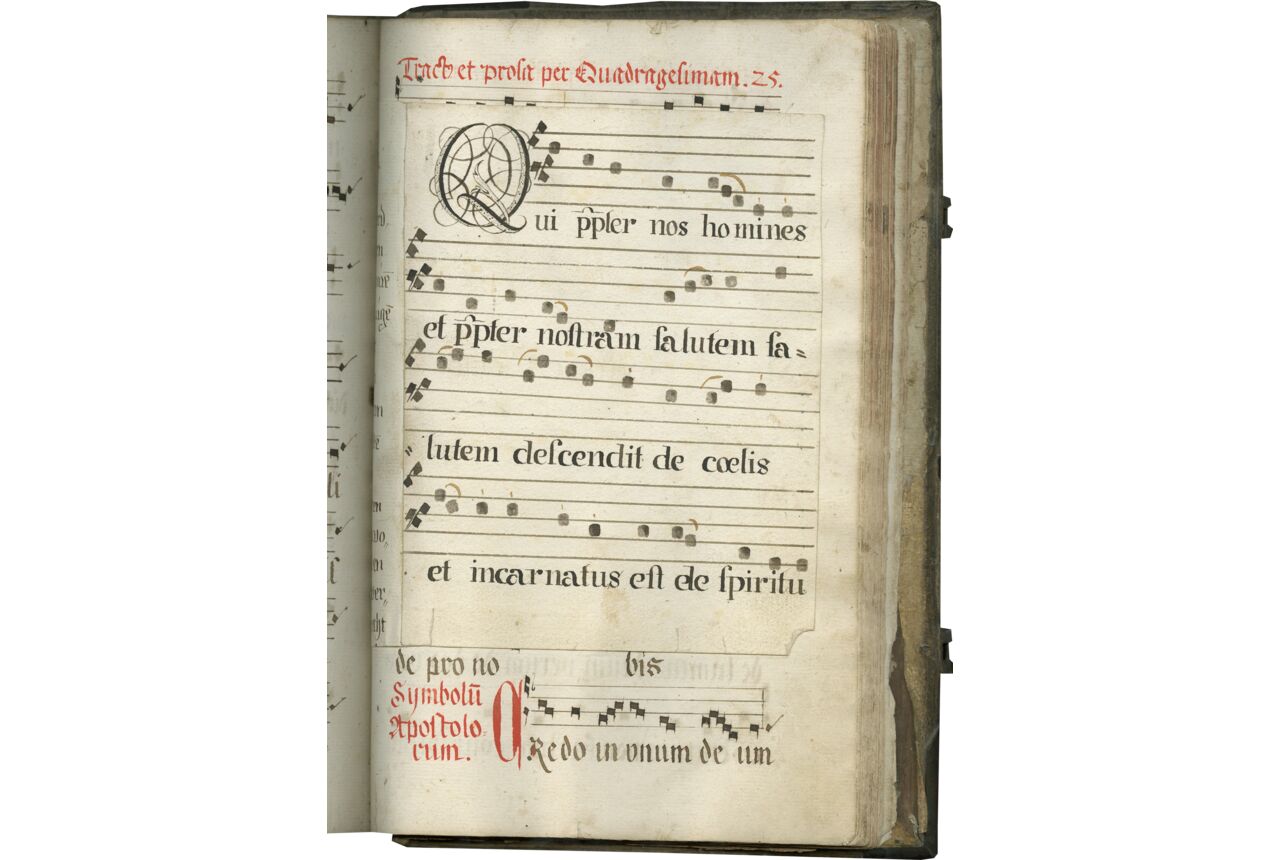 Tract9 et prosa per Quadragesimam. 25.
Qui pp̃ter nos homines
et pp̃ter noſtram ſalutem ſa=
lutem deſcendit de cœlis
et incarnatus eſt de ſpiritu
de pro no bis
Symbolū
Apoſtolo-
rum.
CRedo in vnum de um